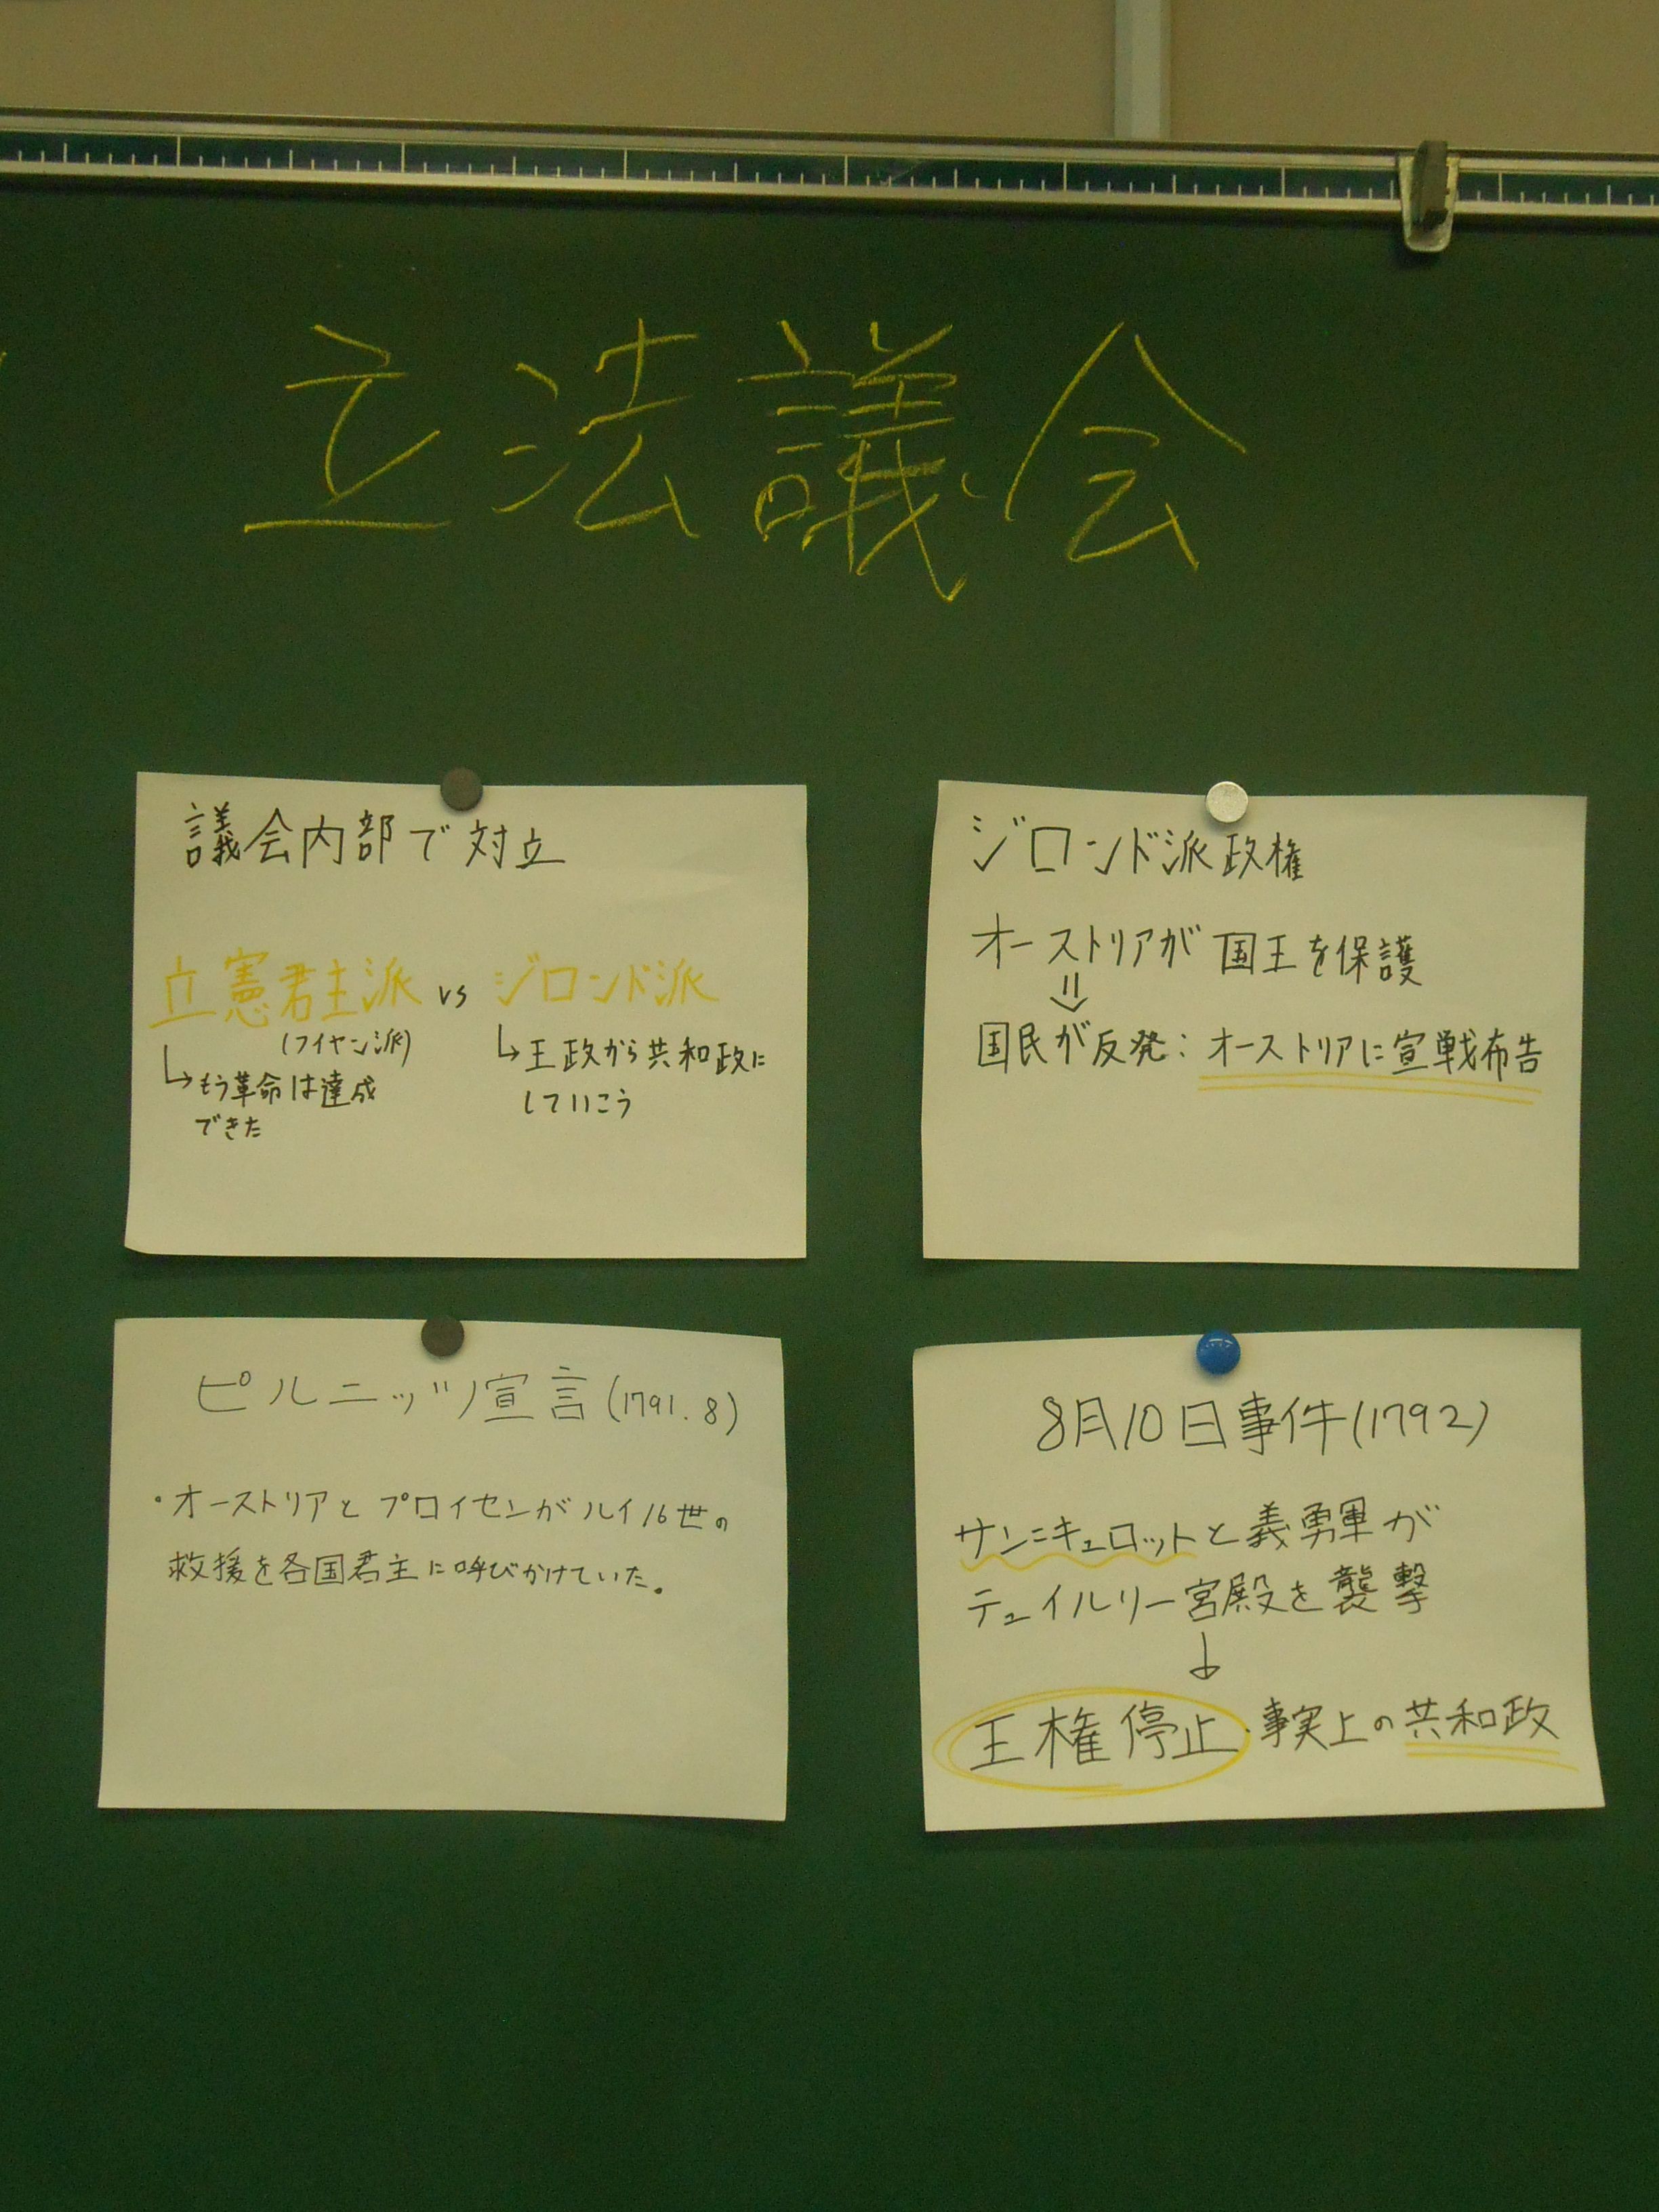 立法議会
議会内部で対立
立憲君主派 vs ジロンド派
(フイヤン派)
↳もう革命は達成
できた
↳王政から共和政に
していこう
ジロンド派政権
オーストリアが国王を保護
⇓
国民が反発:オーストリアに宣戦布告
ピルニッツ宣言(1791.8)
・オーストリアとプロイセンがルイ16世の
救援を各国君主に呼びかけていた。
8月10日事件(1792)
サン=キュロットと義勇軍が
テュイルリー宮殿を襲撃
↓
王権停止・事実上の共和政